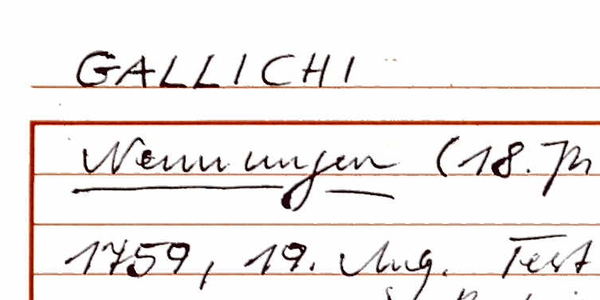 GALLICHI
Nennungen (18. Jh
1759, 19. Aug. Test